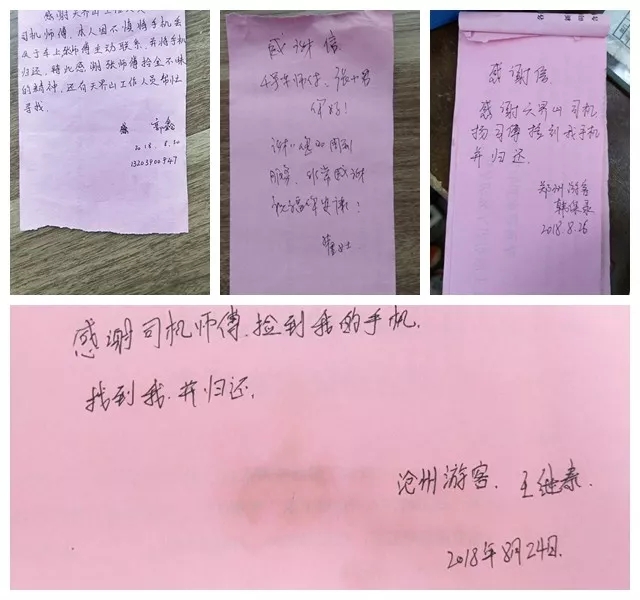 感谢天界山工作人员
司机师傅,本人因不慎将手机丢
于车上张师傅主动联系,并将手机
归还,特此感谢张师傅拾金不昧
的精神,还有天界山工作人员帮忙
寻找。
郭鑫
2018.8.30
13203900947
感谢信
4号车师傅、张
您好!
周到
服务,非常感谢
董女士
感谢信
感谢天界山司机
杨司傅捡到我手机
并归还.
郑州游客
2018.8.26
感谢司机师傅.捡到我的手机.
找到我.并归还.
沧州游客.王继泰.
2018年8月24日.